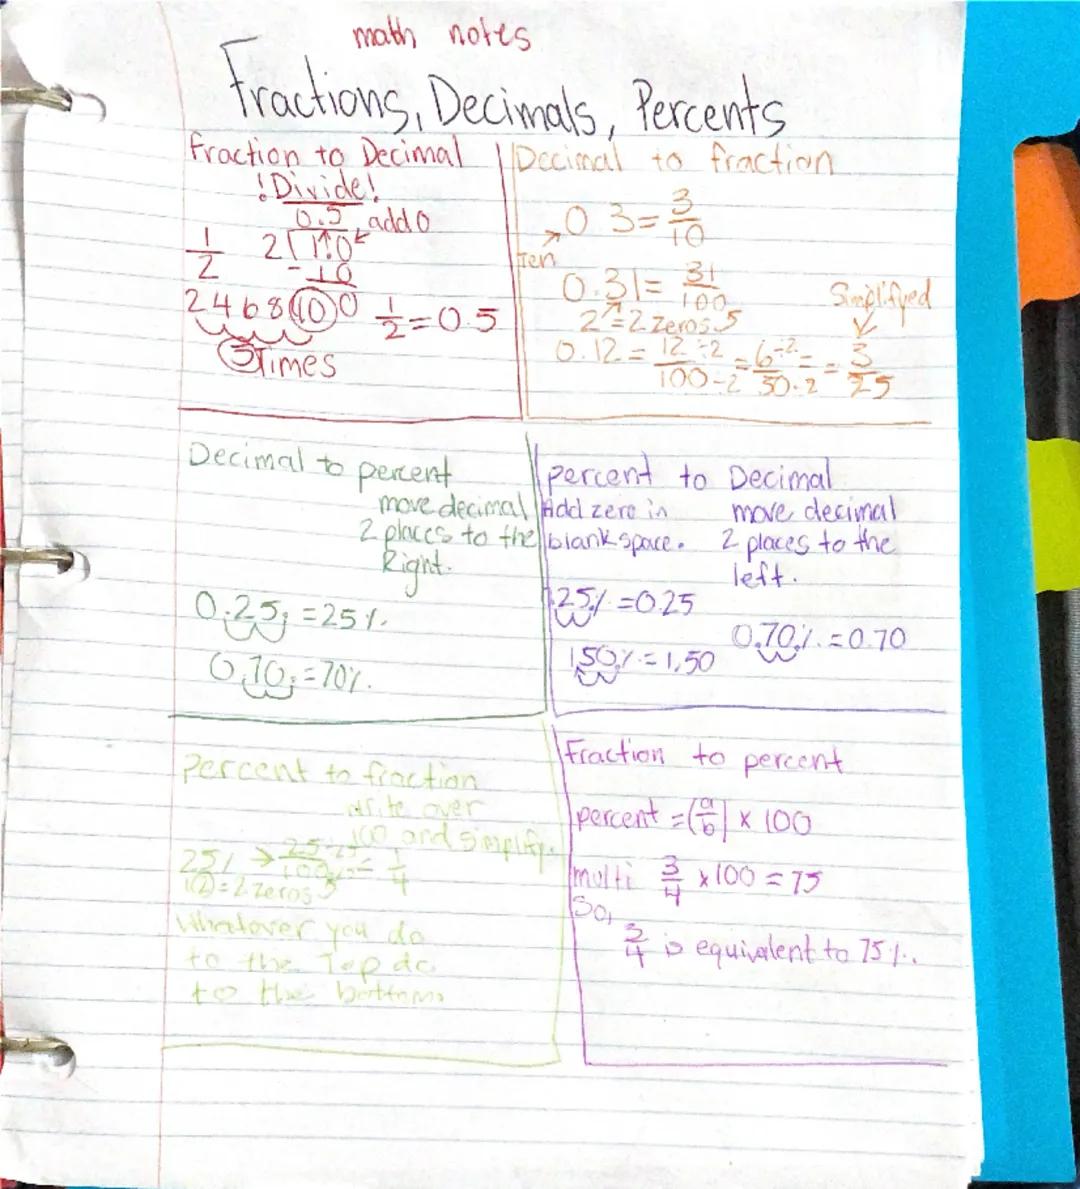 math notes
Fractions, Decimals, Percents
Fraction to Decimal
!Divide!
0.5 add 0
1/2 2√1.0
-10
2 4 6 8 10 0 1/2 = 0.5
5 Times
Decimal to fraction
0.3 = 3/10
Ten
0.31 = 31/100
2 = 2 zeros
Simplifyed
0.12 = 12÷2/100÷2 = 6÷2/50÷2 = 3/25
Decimal to percent
move decimal
2 places to the
Right.
0.25. = 25%
0.70. = 70%
percent to Decimal
Add zero in
blank space.
move decimal
2 places to the
left.
.25.% = 0.25
0.70.% = 0.70
1.50.% = 1.50
Percent to fraction
write over
100 and simplify.
25% → 25÷25/100÷25 = 1/4
100 = 2 zeros
Whatever you do
to the Top do
to the bottom
Fraction to percent
percent = (a/b) x 100
multi 3/4 x 100 = 75
So,
3/4 is equivalent to 75%.